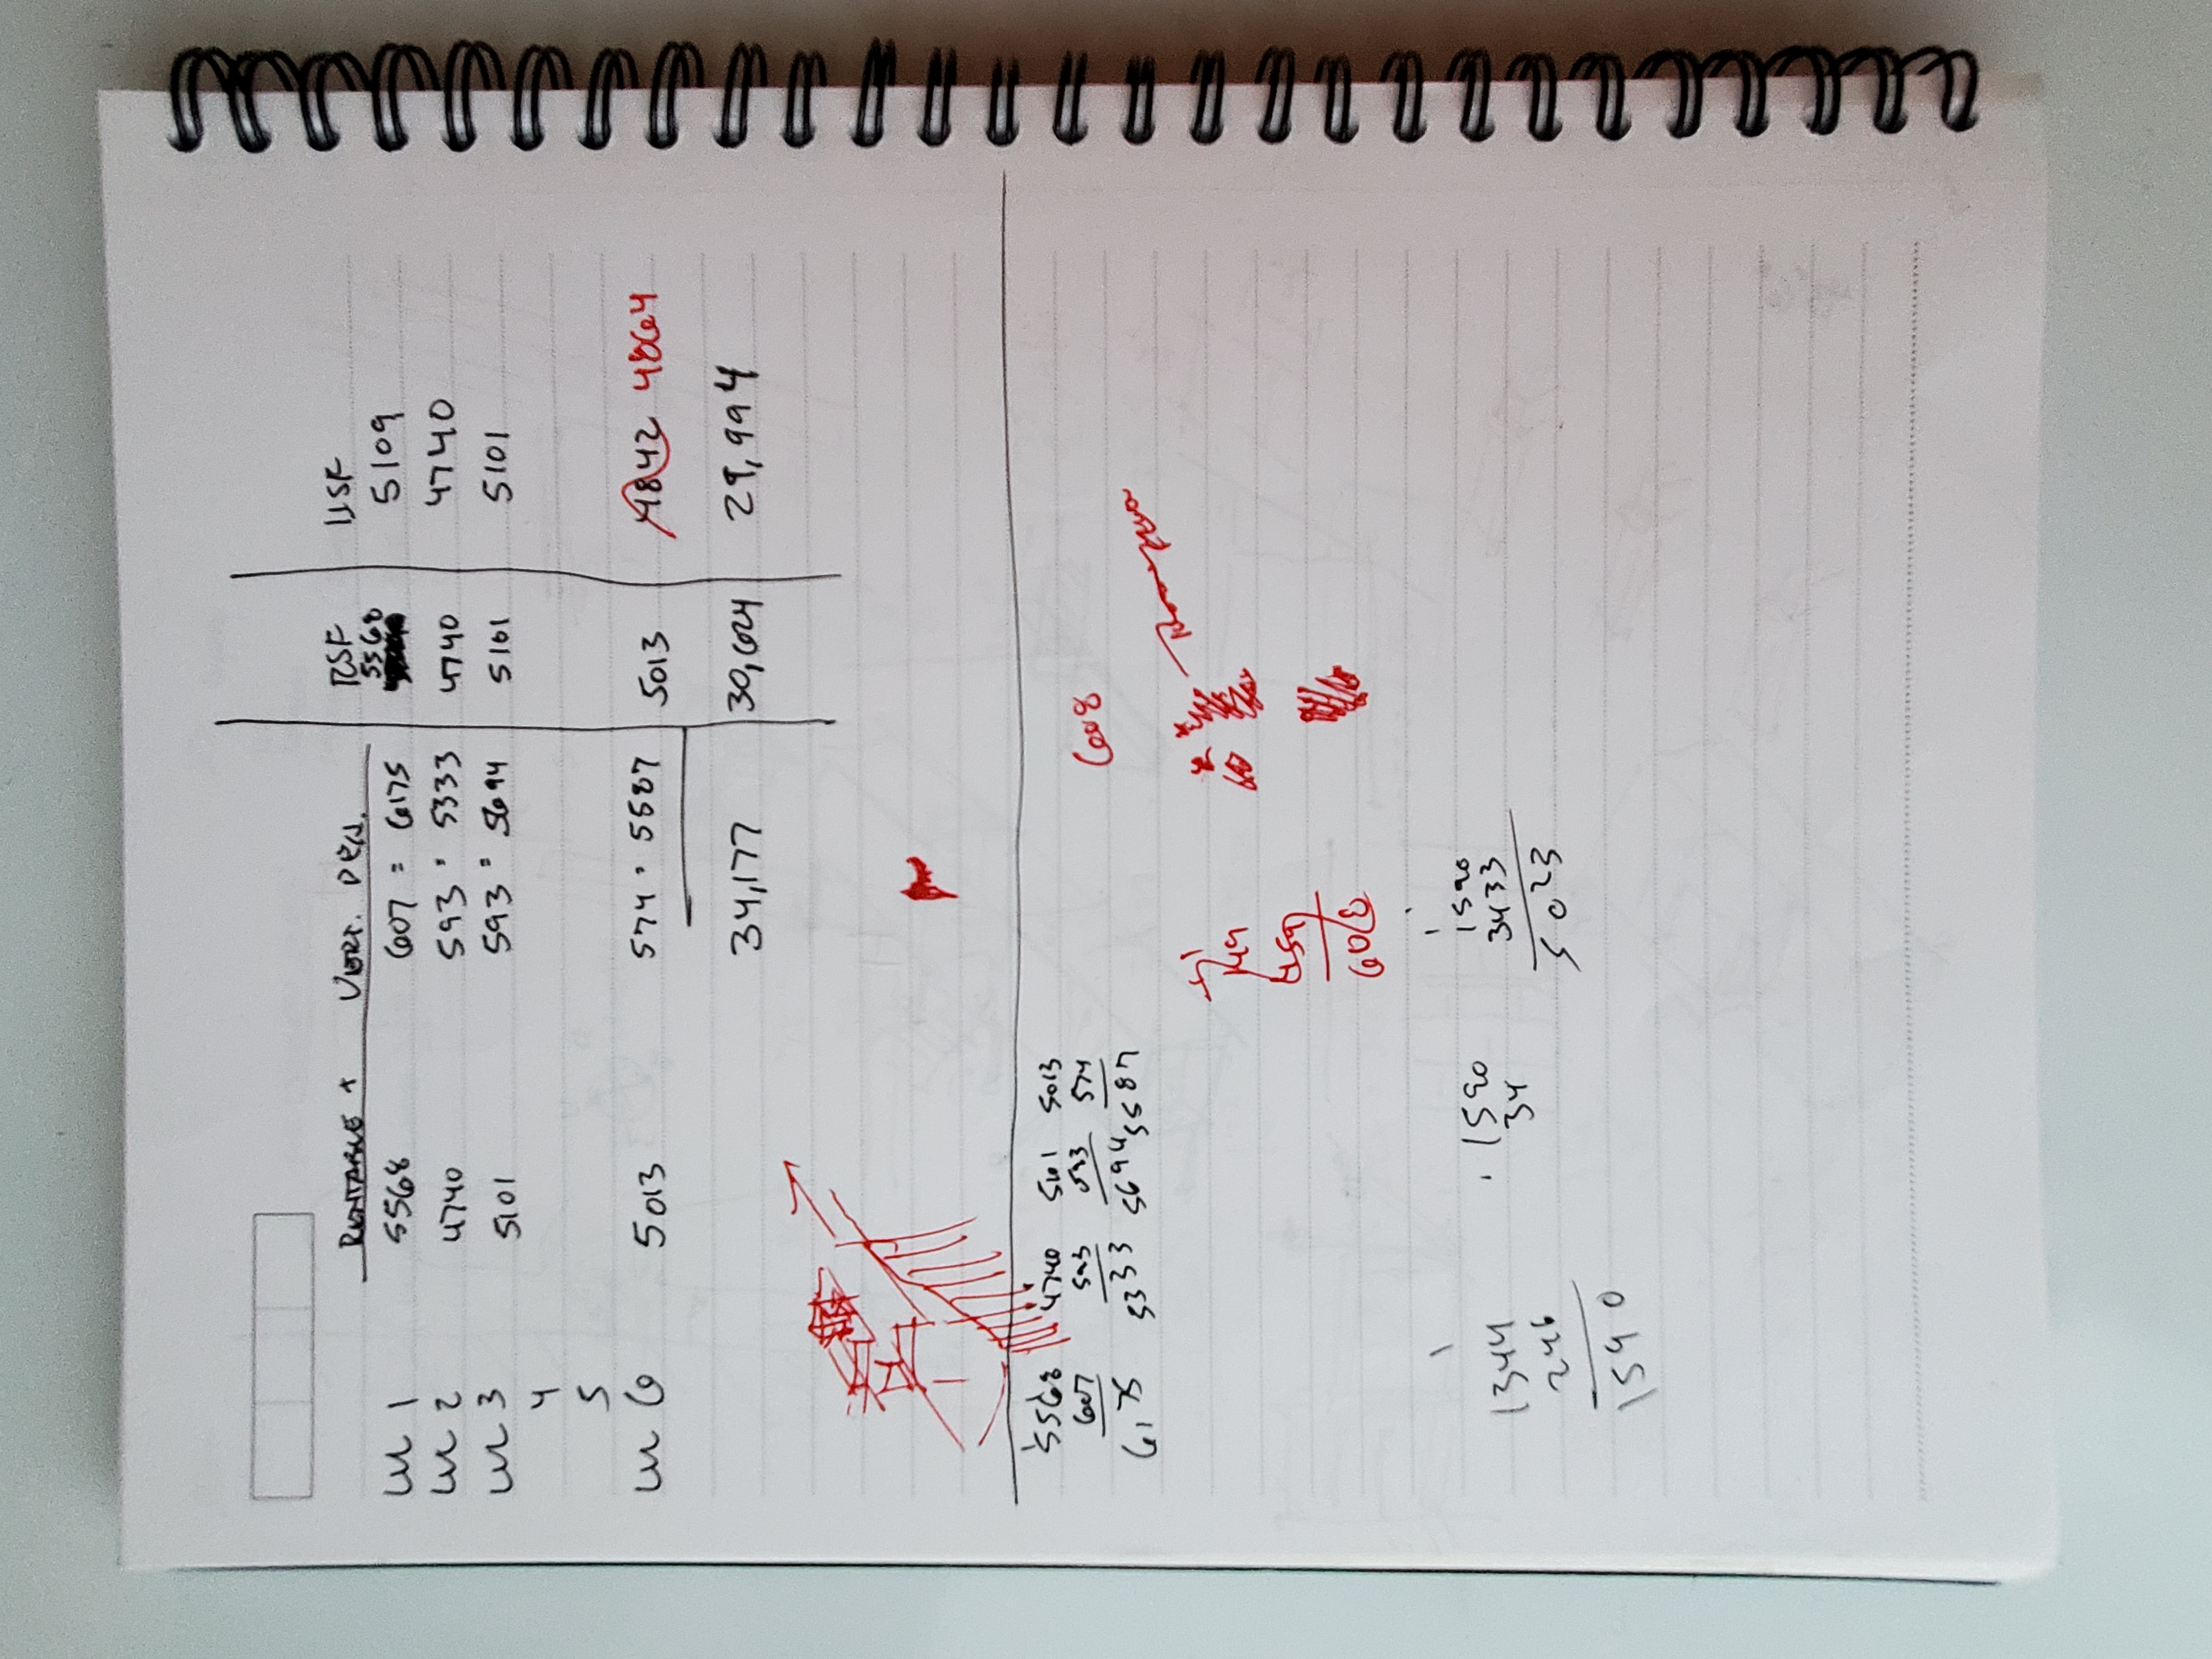 RENTABLE + VERT. PEN. RSF USF
LVL 1 5568 607 = 6175 5568 5109
LVL 2 4740 593 = 5333 4740 4740
LVL 3 5101 593 = 5694 5101 5101
4
5
LVL 6 5013 574 = 5587 5013 4842 4864
34,177 30,624 29,994
5568 4740 5101 5013
607 593 593 574
6175 5333 5694 5587
608
1344 1590 1590
246 34 3433
1590 5023